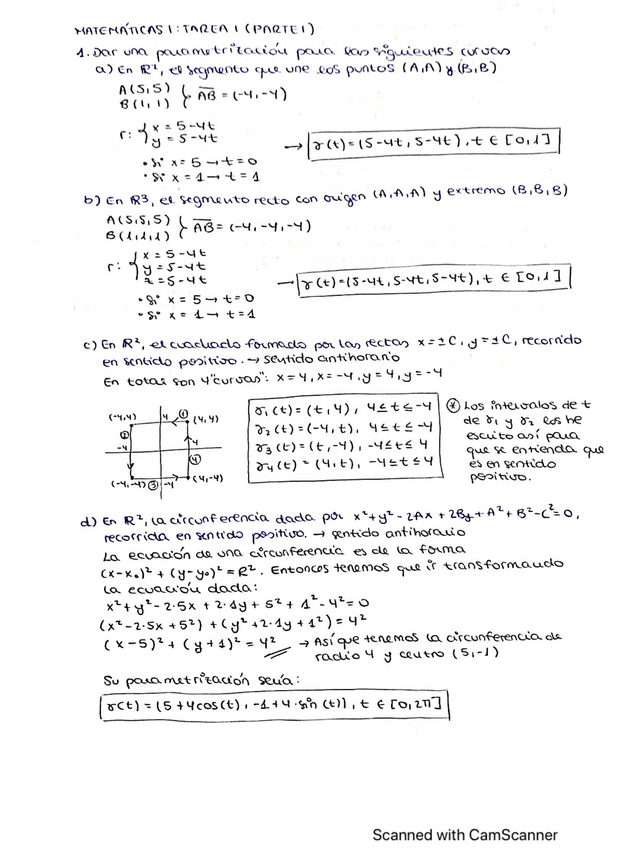 MATEMÁTICAS I: TAREA 1 (PARTE I)
1. Dar una parametrización para las siguientes curvas
a) En R², el segmento que une los puntos (A,A) y (B,B)
A(5,5)
B(1,1) } AB = (-4,-4)
r: { x = 5-4t
y = 5-4t
→ γ(t)=(5-4t, 5-4t), t ∈ [0,1]
• Si x = 5 → t = 0
• Si x = 1 → t = 1
b) En R3, el segmento recto con origen (A,A,A) y extremo (B,B,B)
A(5,5,5)
B(1,1,1) } AB = (-4,-4,-4)
r: { x = 5-4t
y = 5-4t
z = 5-4t
→ γ(t)=(5-4t, 5-4t, 5-4t), t ∈ [0,1]
• Si x = 5 → t = 0
• Si x = 1 → t = 1
c) En R², el cuadrado formado por las rectas x = ±C, y = ±C, recorrido
en sentido positivo. → sentido antihorario
En total son 4 "curvas": x = 4, x = -4, y = 4, y = -4
(-4,4) 4 ① (4,4)
② -4 4 ④
(-4,-4) ③ -4 (4,-4)
γ1(t) = (t,4), 4≤t≤-4
γ2(t) = (-4,t), 4≤t≤-4
γ3(t) = (t,-4), -4≤t≤4
γ4(t) = (4,t), -4≤t≤4
* Los intervalos de t
de γ1 y γ2 los he
escrito así para
que se entienda que
es en sentido
positivo.
d) En R², la circunferencia dada por x²+y²-2Ax+2By+A²+B²-C²=0,
recorrida en sentido positivo. → sentido antihorario
La ecuación de una circunferencia es de la forma
(x-x₀)² + (y-y₀)² = R². Entonces tenemos que ir transformando
la ecuación dada:
x²+y²-2·5x+2·1y+5²+1²-4²=0
(x²-2·5x+5²)+(y²+2·1y+1²)=4²
(x-5)²+(y+1)²=4² → Así que tenemos la circunferencia de
radio 4 y centro (5,-1)
Su parametrización sería:
γ(t) = (5+4cos(t), -1+4·sin(t)), t ∈ [0,2π]
Scanned with CamScanner